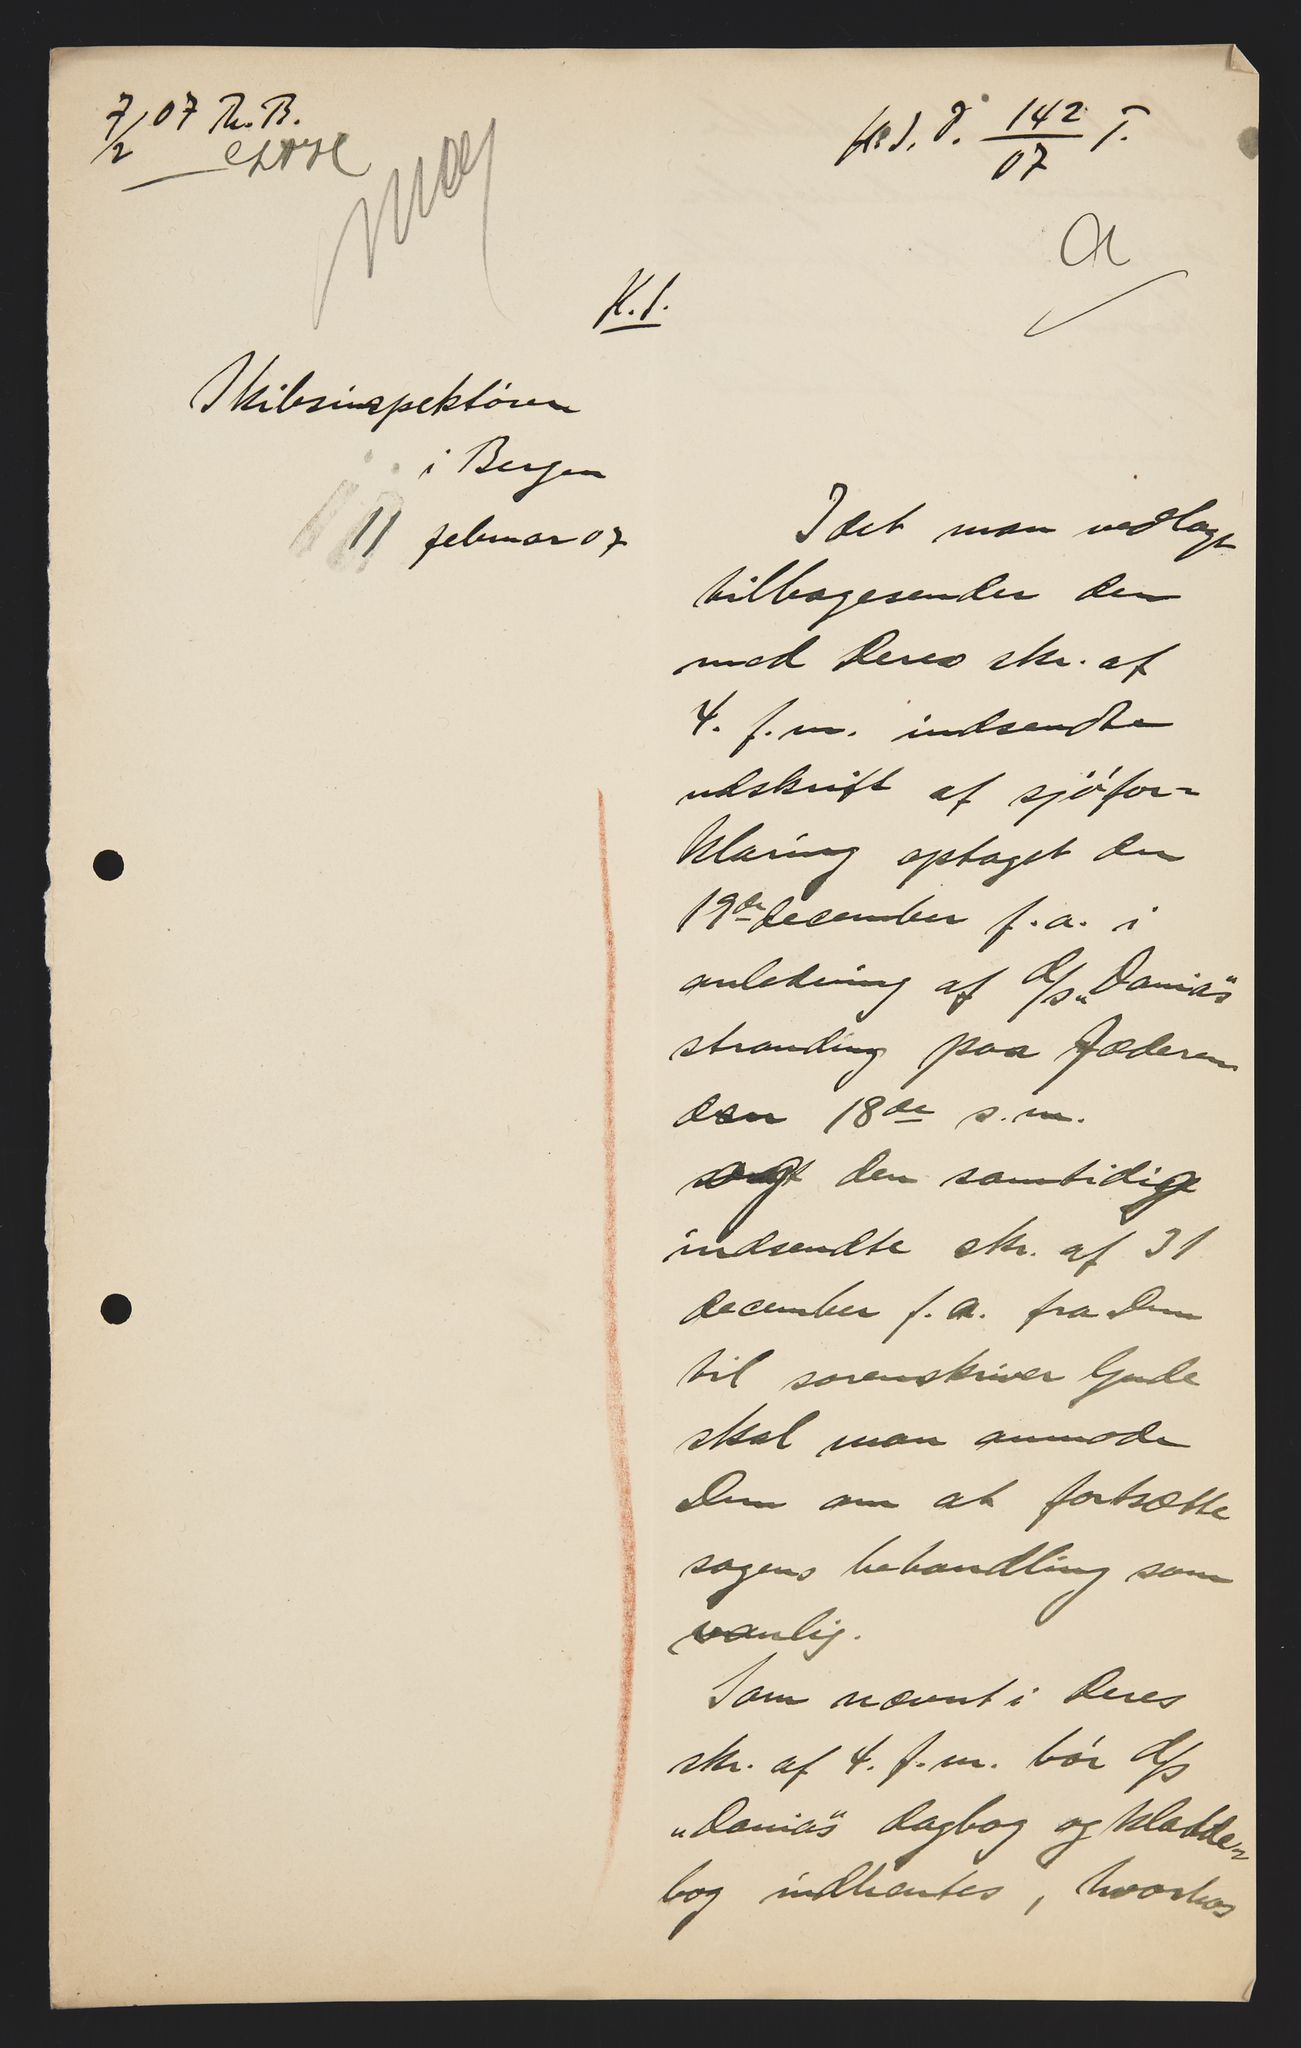 7/2 07 Th. B.
J. 142/07 T.
K. S.
Skibsinspektøren
i Bergen
11 februar 07
Idet man vedlagt
tilbagesender den
med Deres skr. af
4. f.m. indsendte
udskrift af sjöfor=
klaring optaget den
19de december f.a. i
anledning af D/S „Dania"s
stranding paa Jæderen
den 18de s.m.
og den samtidige
indsendte skr. af 31
december f.a. fra Dem
til sorenskriver Gude
skal man anmode
Dem om at fortsætte
sagens behandling som
vanlig.
Som nævnt i Deres
skr. af 4. f.m. bör D/S
„Dania"s dagbog og kladde=
bog indhentes, hvorhos